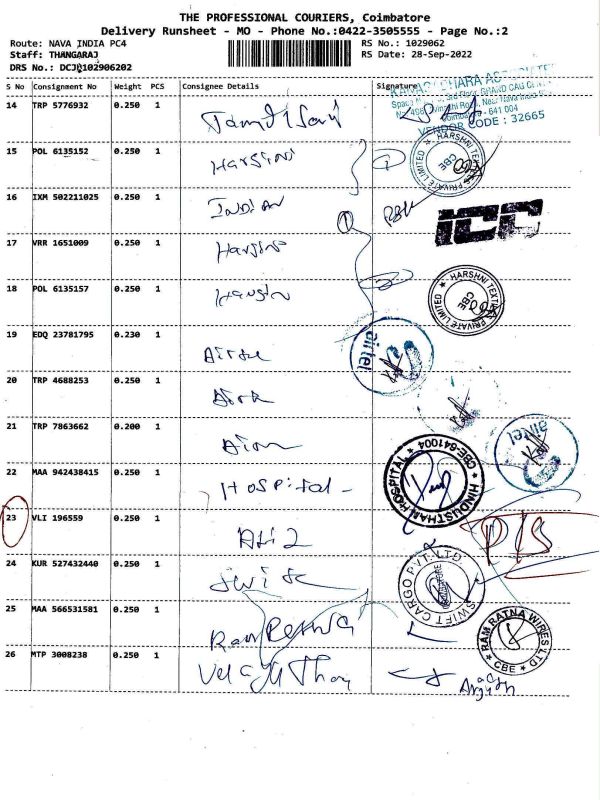 THE PROFESSIONAL COURIERS, Coimbatore
Delivery Runsheet - MO - Phone No.:0422-3505555 - Page No.:2
Route: NAVA INDIA PC4 RS No.: 1029062
Staff: THANGARAJ RS Date: 28-Sep-2022
DRS No.: DCJP102906202
S No Consignment No Weight PCS Consignee Details Signature
VENDOR CODE : 32665
14 TRP 5776932 0.250 1
15 POL 6135152 0.250 1 Harsini
HARSHNI TEXTILES PRIVATE LIMITED CBE
16 IXM 502211025 0.250 1 INDIAN
ICC
17 VRR 1651009 0.250 1 Harsini
18 POL 6135157 0.250 1 Harsini
HARSHNI TEXTILES PRIVATE LIMITED CBE
19 EDQ 23781795 0.230 1
airtel
20 TRP 4688253 0.250 1
21 TRP 7863662 0.200 1
airtel
22 MAA 942438415 0.250 1 Hospital
HINDUSTHAN HOSPITAL CBE-641004
23 VLI 196559 0.250 1
24 KUR 527432440 0.250 1
SWIFT CARGO PVT. LTD
25 MAA 566531581 0.250 1
RAM RATNA WIRES LTD CBE
26 MTP 3008238 0.250 1